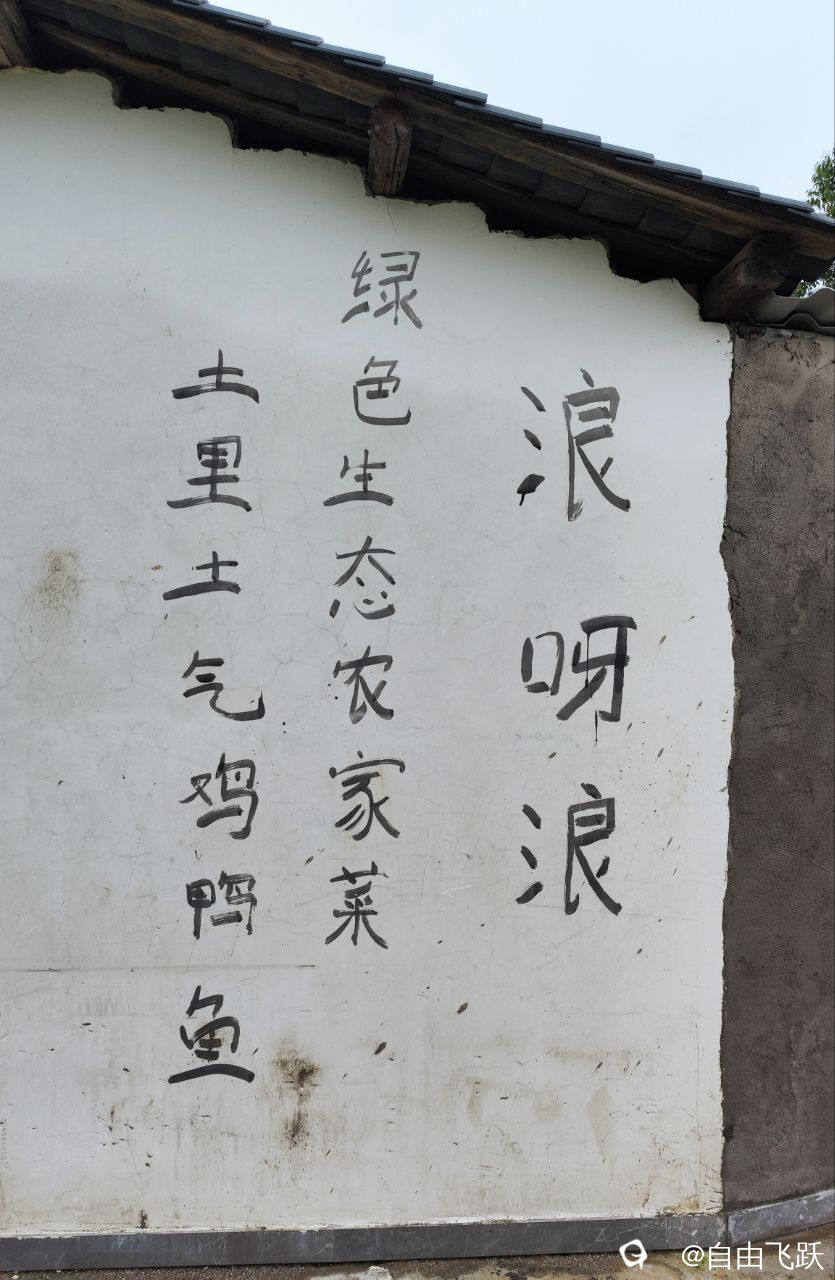 浪呀浪
绿色生态农家菜
土里土气鸡鸭鱼
@自由飞跃